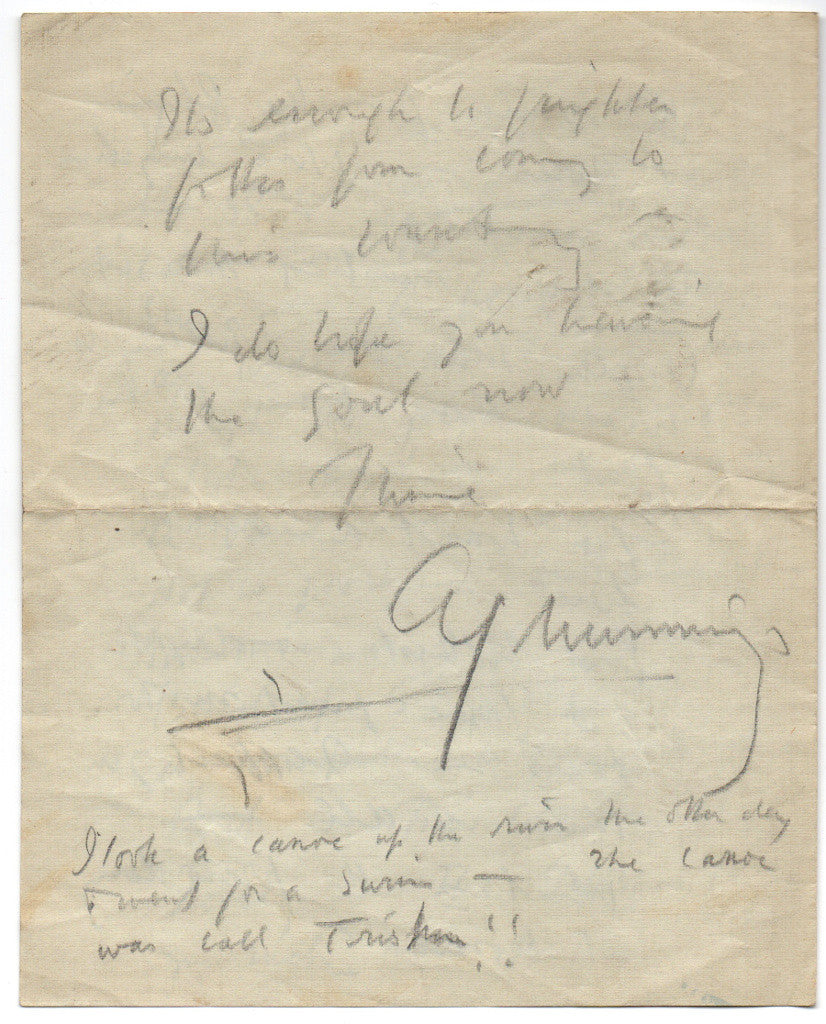 It's enough to frighten
folks from coming to
this country
I do hope you
the now —
Thine
AJ Munnings
I took a canoe up the river the other day
& went for a swim — the canoe
was call Tristan!!